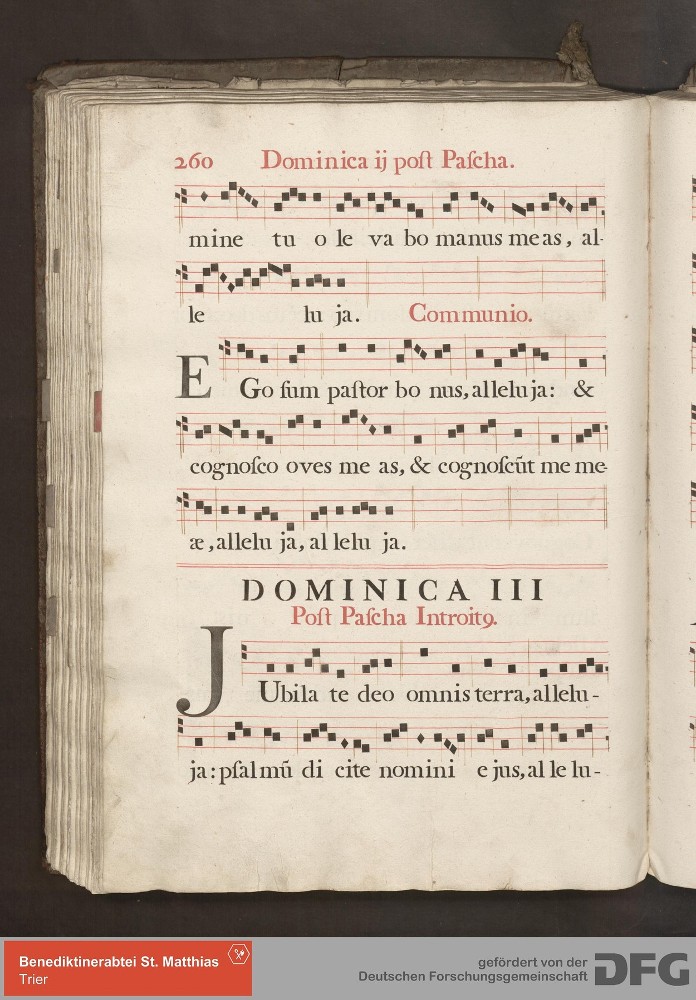 260 Dominica ij poſt Paſcha.
mine tu o le va bo manus meas, al-
le lu ja. Communio.
EGo ſum paſtor bo nus, alleluja: &
cognoſco oves me as, & cognoſcūt me me-
æ, allelu ja, al lelu ja.
DOMINICA III
Poſt Paſcha Introitꝯ.
JUbila te deo omnis terra, allelu-
ja: pſalmū di cite nomini ejus, al le lu-
Benediktinerabtei St. Matthias
Trier
gefördert von der
Deutschen Forschungsgemeinschaft DFG